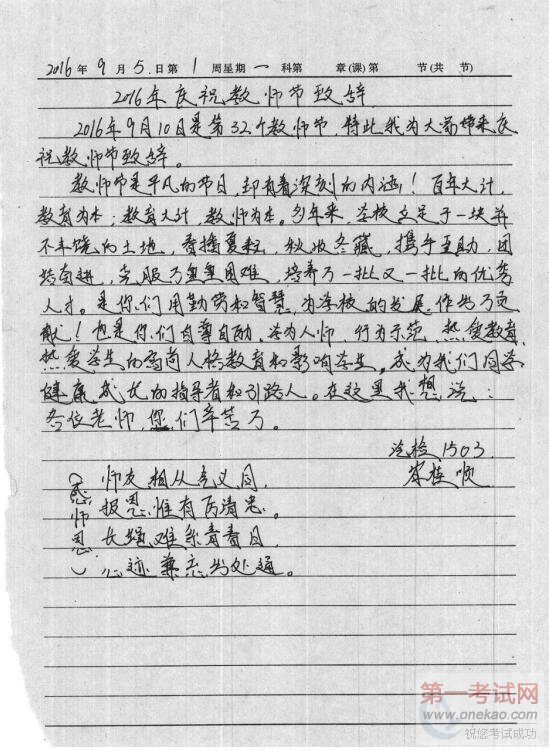 2016年9月5日第1周星期一科第 章(课)第 节(共 节)
2016年庆祝教师节致辞
2016年9月10日是第32个教师节,特此我为大家带来庆
祝教师节致辞。
教师节是平凡的节日,却有着深刻的内涵!百年大计,
教育为本;教育大计,教师为本。多年来,学校立足于一块并
不丰饶的土地,春播夏耘,秋收冬藏,携手互助,团
结奋进,克服了重重困难,培养了一批又一批的优秀
人才。是你们用勤劳和智慧,为学校的发展作出了贡
献!也是你们自尊自励,学为人师,行为示范,热爱教育
热爱学生的高尚人格教育和影响学生,成为我们同学
健康成长的指导者和引路人。在这里我想说:
各位老师,您们辛苦了。
汽检1503
(感师恩)
师友相从 义同,
报恩惟有 清忠。
长绳难系青春日
心迹兼 处通。
第一考试网
www.onekao.com
祝您考试成功